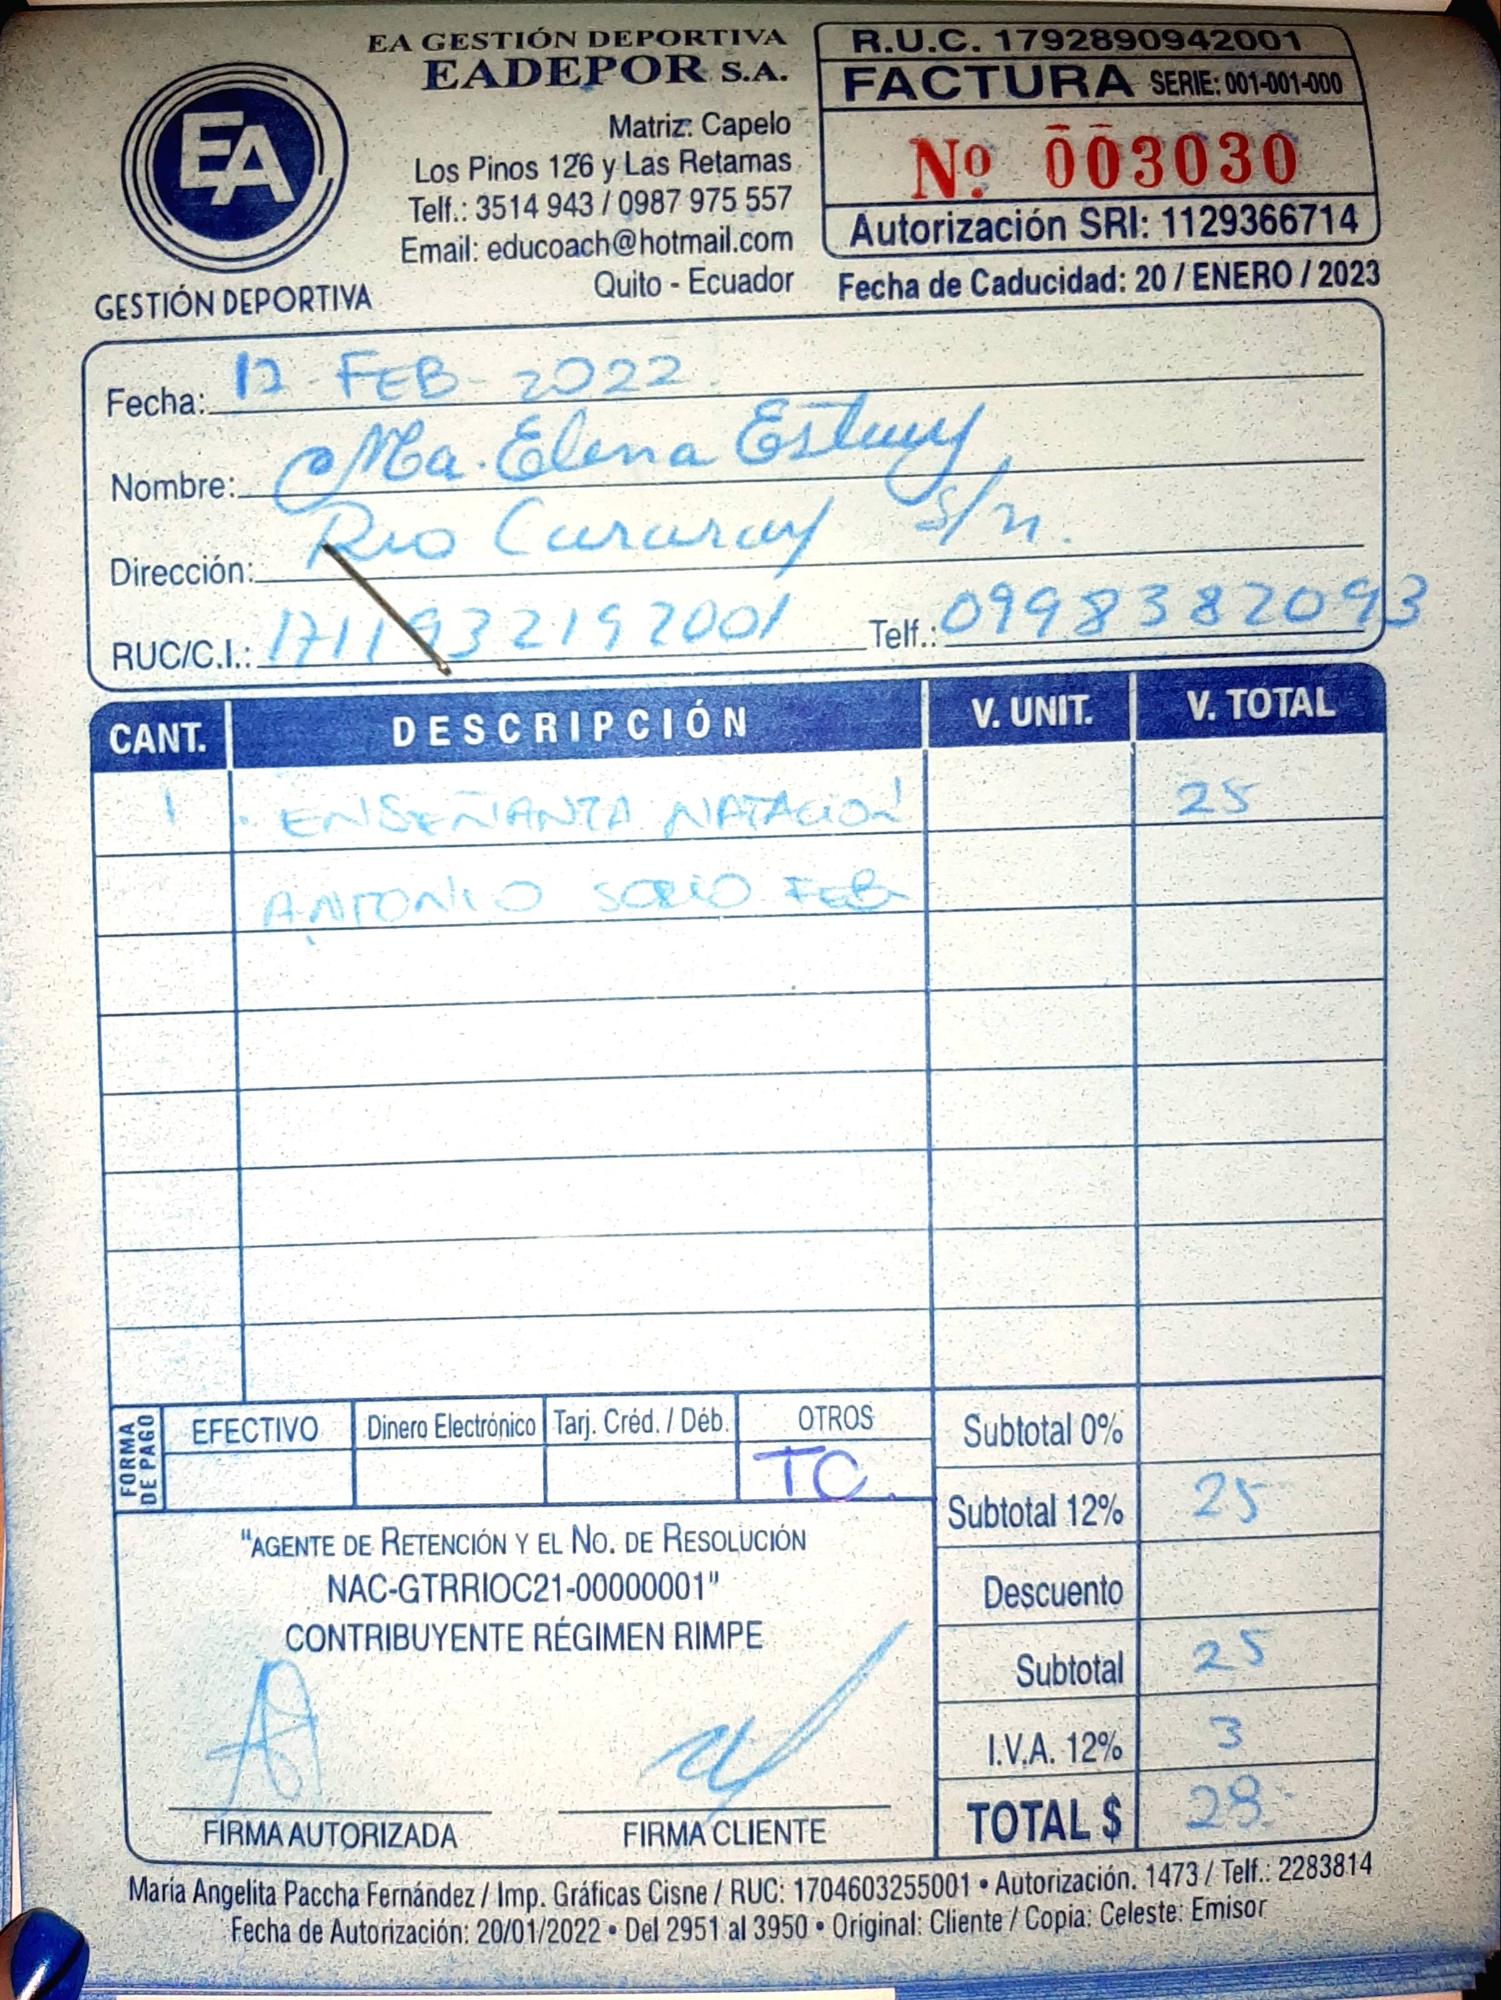 EA GESTIÓN DEPORTIVA
EADEPOR S.A.
Matriz: Capelo
Los Pinos 126 y Las Retamas
Telf.: 3514 943 / 0987 975 557
Email: educoach@hotmail.com
Quito - Ecuador
EA
GESTIÓN DEPORTIVA
R.U.C. 1792890942001
FACTURA SERIE: 001-001-000
Nº 003030
Autorización SRI: 1129366714
Fecha de Caducidad: 20 / ENERO / 2023
Fecha: 12 - FEB - 2022
Nombre: Ma. Elena
Dirección: Rio Curaray s/n.
RUC/C.I.: 1711932197001 Telf.: 0998382093
CANT. DESCRIPCIÓN V. UNIT. V. TOTAL
1 . ENSEÑANZA NATACION 25
ANTONIO FEB
FORMA DE PAGO
EFECTIVO Dinero Electrónico Tarj. Créd. / Déb. OTROS
TC.
Subtotal 0%
Subtotal 12% 25
Descuento
Subtotal 25
I.V.A. 12% 3
TOTAL $ 28.
"AGENTE DE RETENCIÓN Y EL NO. DE RESOLUCIÓN
NAC-GTRRIOC21-00000001"
CONTRIBUYENTE RÉGIMEN RIMPE
FIRMA AUTORIZADA FIRMA CLIENTE
María Angelita Paccha Fernández / Imp. Gráficas Cisne / RUC: 1704603255001 • Autorización. 1473 / Telf.: 2283814
Fecha de Autorización: 20/01/2022 • Del 2951 al 3950 • Original: Cliente / Copia: Celeste: Emisor